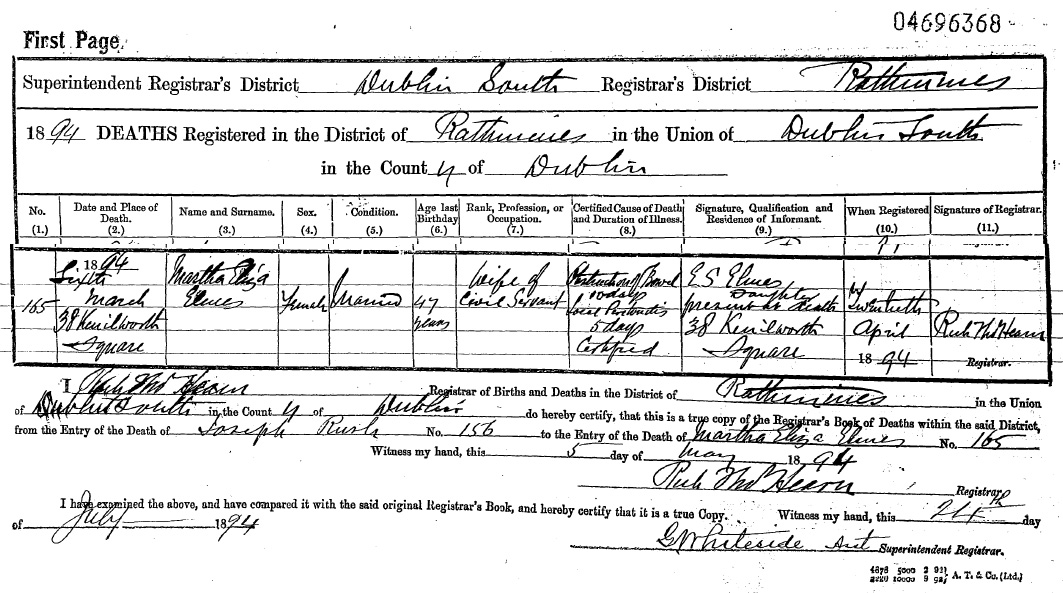 04696368
First Page.
Superintendent Registrar's District Dublin South Registrar's District Rathmines
1894 DEATHS Registered in the District of Rathmines in the Union of Dublin South
in the County of Dublin
No. (1.) Date and Place of Death. (2.) Name and Surname. (3.) Sex. (4.) Condition. (5.) Age last Birthday (6.) Rank, Profession, or Occupation. (7.) Certified Cause of Death and Duration of Illness. (8.) Signature, Qualification and Residence of Informant. (9.) When Registered (10.) Signature of Registrar. (11.)
1894 Martha Eliza Wife of Obstruction of Bowel E S Elmes
Sixth Elmes Civil Servant 10 days Daughter
165 March Female Married 47 local present at death Twentieth
38 Kenilworth years 5 days 38 Kenilworth April Hearn
Square Certified Square 1894 Registrar.
I Hearn Registrar of Births and Deaths in the District of Rathmines in the Union
of Dublin South in the County of Dublin do hereby certify, that this is a true copy of the Registrar's Book of Deaths within the said District,
from the Entry of the Death of Joseph Rush No. 156 to the Entry of the Death of Martha Eliza Elmes No. 165
Witness my hand, this 5 day of May 1894
Hearn Registrar
I have examined the above, and have compared it with the said original Registrar's Book, and hereby certify that it is a true Copy. Witness my hand, this 24th day
of July 1894
G Whiteside Superintendent Registrar.
4878 5000 2 92
2220 10000 9 92 A. T. & Co. (Ltd.)